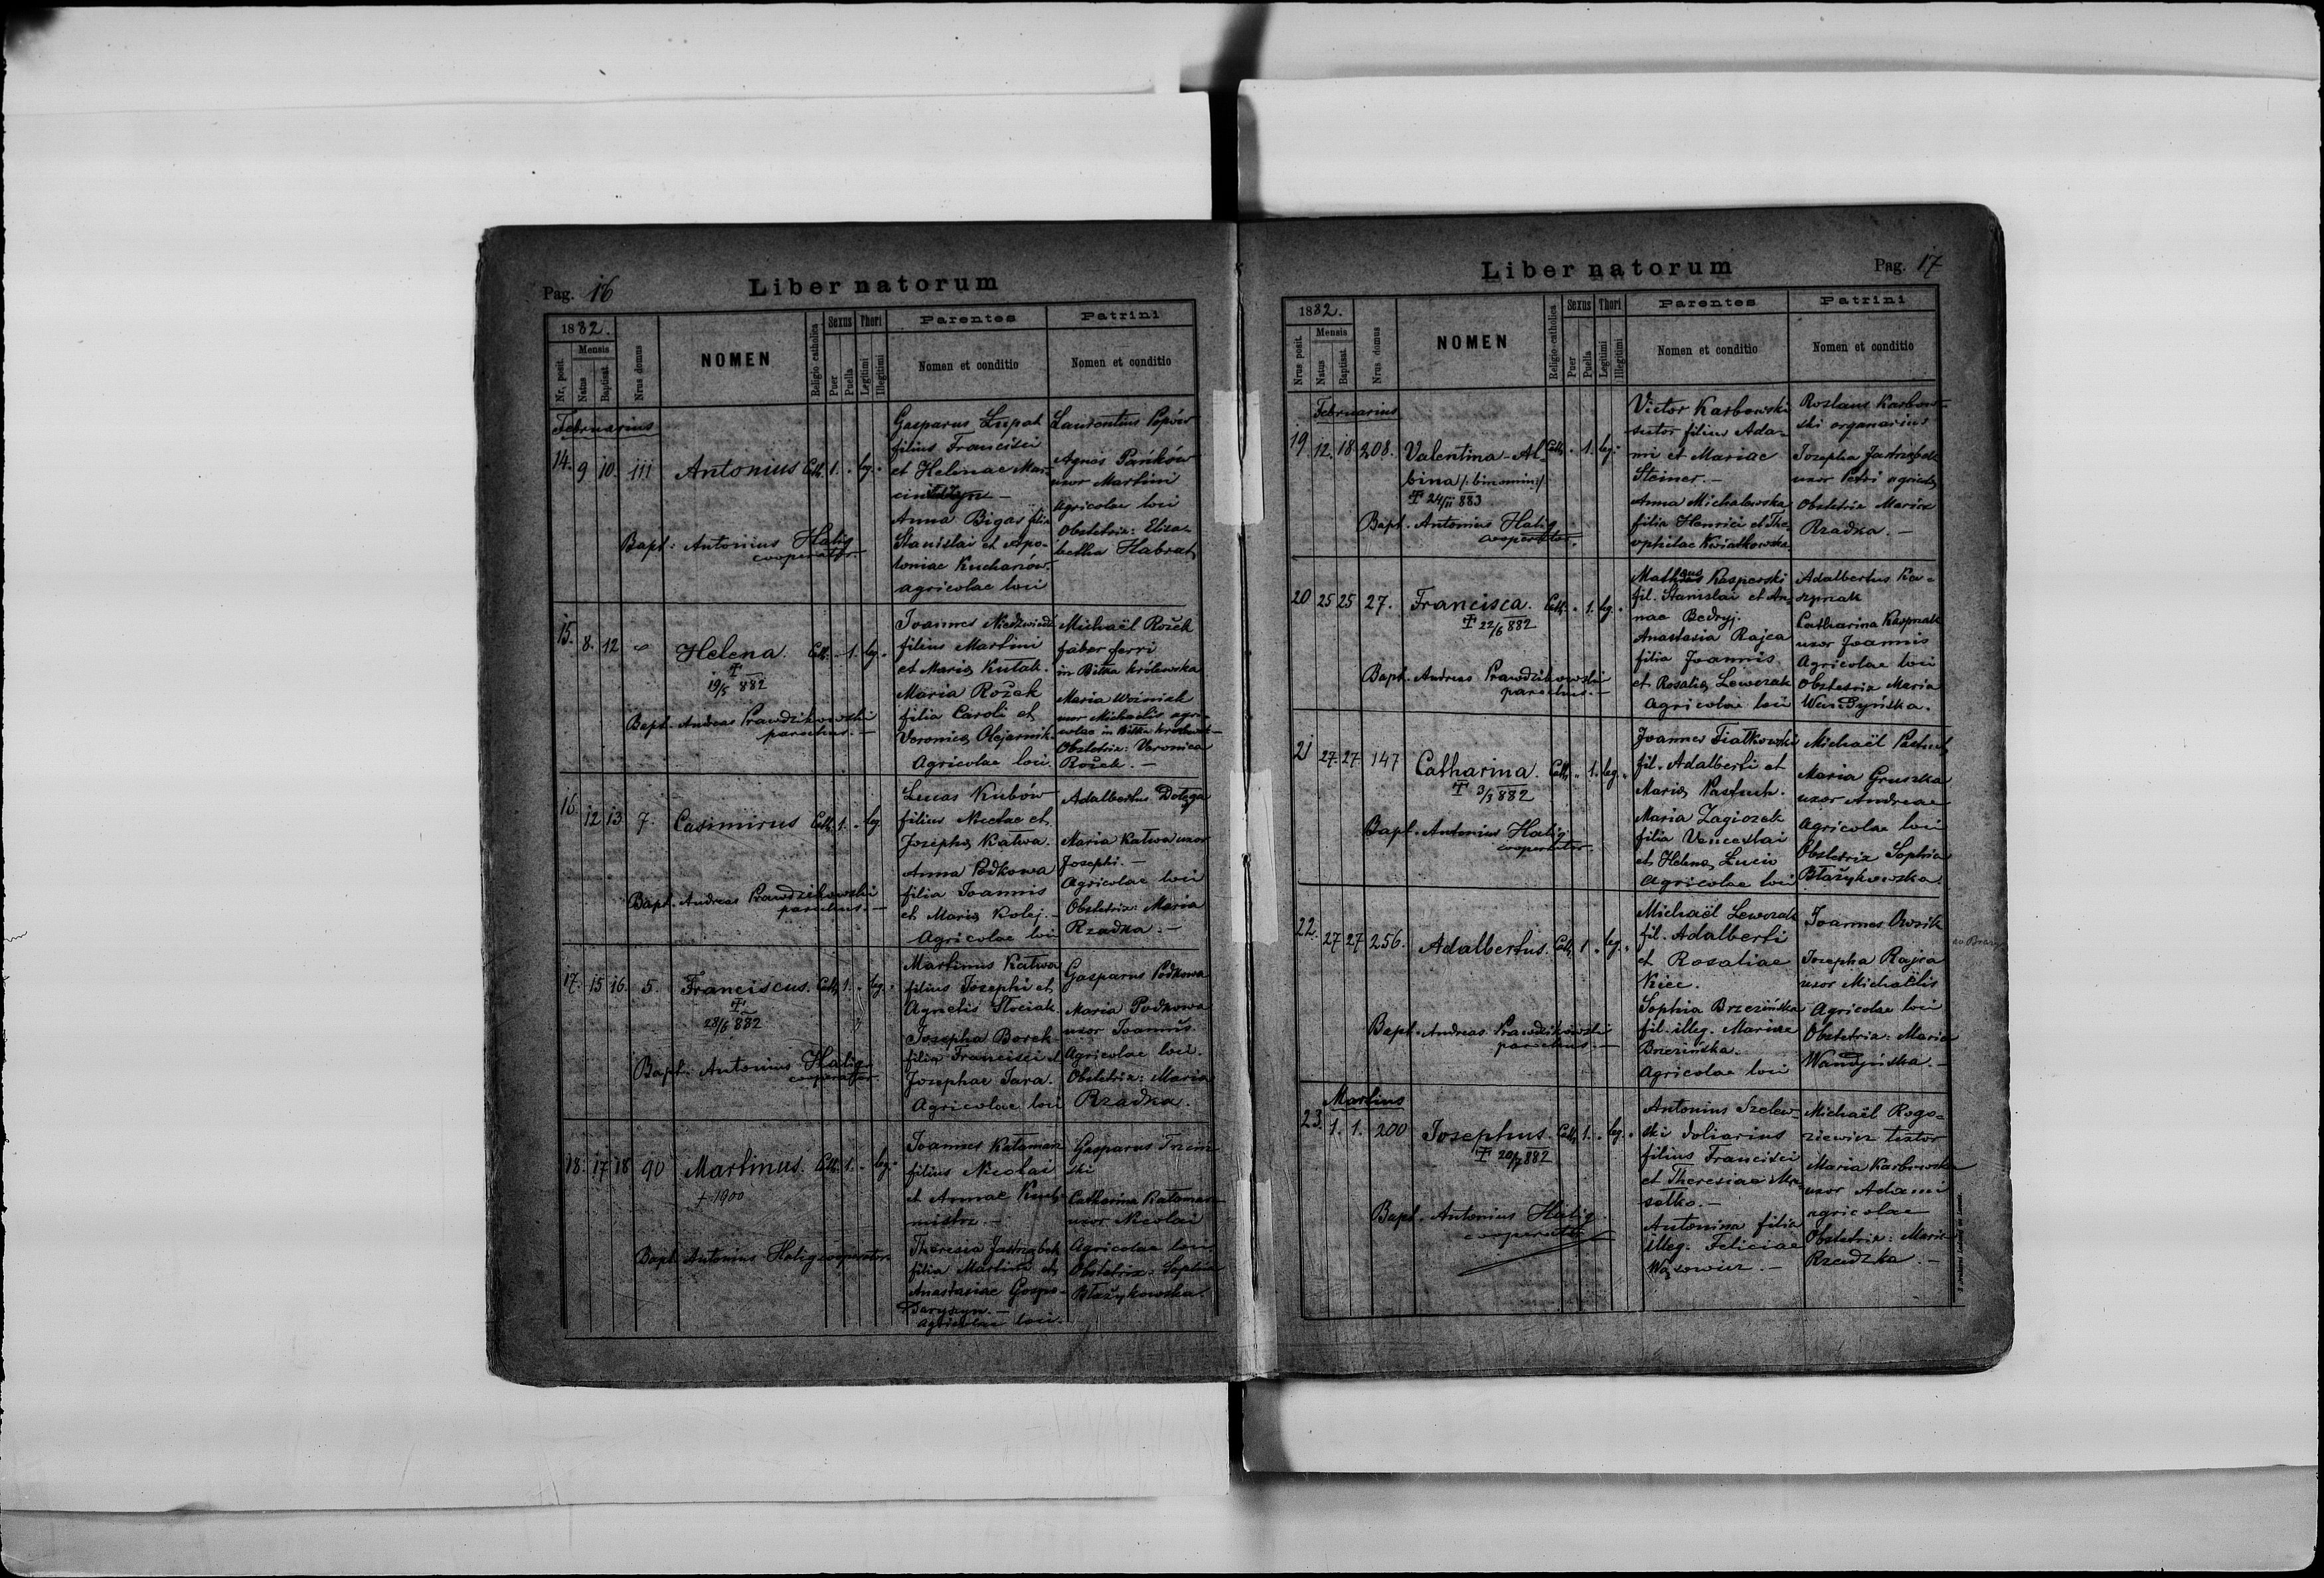 Pag. 16
Liber natorum
1882.
Nr. posit.
Mensis
Natus
Baptisat.
Nrus domus
NOMEN
Religio catholica
Sexus
Puer
Puella
Thori
Legitimi
Illegitimi
Parentes
Nomen et conditio
Patrini
Nomen et conditio
Februarius
14. 9 10. 111 Antonius Cath. 1. leg.
Bapt: Antonius Halig
cooperator.
Gasparus Łupat
filius Francisci
et Helenae Mar-
Anna Bigas filia
Stanislai et Apo-
loniae Kucharów.
agricolae loci
Laurentius Popów
Agnes Pańków
uxor Martini
agricolae loci
Obstetrix: Elisa-
betha Habrat
15. 8. 12 Helena. Cath. 1. leg.
19/5 882
Bapt. Andreas Prawdzikowski
parochus.
Joannes Niedzwiedź
filius Martini
et Maria Kutak.
Maria Rożek
filia Caroli et
Veronica Olejarnik.
Agricolae loci.
Michaël Rożek
faber ferri
in Biłka królewska
Maria Woźniak
uxor Michaelis agri-
colae in Biłka królewsk-
Obstetrix: Veronica
Rożek. -
16. 12 13 7. Casimirus Cath. 1. leg
Bapt. Andreas Prawdzikowski
parochus. -
Lucas Kubów
filius Nicolae et
Josepha Katwa.
Anna Podkowa
filia Joannis
et Maria Kolej. -
Agricolae loci
Adalbertus Dołęga
Maria Katwa uxor
Josephi. -
Agricolae loci
Obstetrix: Maria
Rzadka. -
17. 15 16. 5. Franciscus. Cath. 1. leg.
28/6 882
Bapt. Antonius Halig
cooperator.
Martinus Katwa
filius Josephi et
Agnetis Stociak.
Josepha Borek
filia Francisci et
Josephae Jara.
Agricolae loci
Gasparus Podkowa
Maria Podkowa
uxor Joannis.
Agricolae loci.
Obstetrix: Maria
Rzadka.
18. 17 18 90 Martinus. Cath. 1. leg.
+ 1900
Bapt. Antonius Halig cooperator.
Joannes Kataman
filius Nicolai
et Annae Kuch-
mistrz. -
Theresia Jastrzębek
filia Martini et
Anastasiae Gospo-
daryszyn. -
agricolae loci.
Gasparus Trzciń-
ski
Catharina Kataman
uxor Nicolai
Agricolae loci
Obstetrix: Sophia
Błażykowska
Liber natorum
Pag. 17
1882.
Nrus posit.
Mensis
Natus
Baptisat.
Nrus domus
NOMEN
Religio catholica
Sexus
Puer
Puella
Thori
Legitimi
Illegitimi
Parentes
Nomen et conditio
Patrini
Nomen et conditio
Februarius
19 12. 18. 208. Valentina - Al-
bina /: binomin:/
24/11 883
Cath. 1. leg.
Bapt. Antonius Halig
cooperator.
Victor Karbowski
sutor filius Ada-
mi et Mariae
Steiner. -
Anna Michalewska
filia Henrici et The-
ophilae Kwiatkowska.
Roslaus Karbow-
ski organarius
Josepha Jastrzębek
uxor Petri agricolae
Obstetrix Maria
Rzadka. -
20 25 25 27. Francisca. Cath. 1. leg.
22/6 882
Bapt. Andreas Prawdzikowski
parochus. -
Kasperski
fil. Stanislai et An-
nae Bedryj.
Anastasia Rajca
filia Joannis
et Rosalia Lewczak
Agricolae loci
Adalbertus Ka-
szpzak
Catharina Kaspzak
uxor Joannis
Agricolae loci
Obstetrix Maria
Wandyńska.
21 27. 27. 147 Catharina. Cath. 1. leg.
3/3 882
Bapt. Antonius Halig
cooperator.
Joannes Fiałkowski
fil. Adalberti et
Maria Pastuch.
Maria Zagiozek
filia Venceslai
et Helena Łuciw
Agricolae loci
Michaël Pastuch
Maria Gruszka
uxor Andreae
Agricolae loci
Obstetrix Sophia
Błażykowska.
22. 27 27 256. Adalbertus. Cath. 1. leg.
Bapt. Andreas Prawdzikowski
parochus. -
Michaël Lewczak
fil. Adalberti
et Rosaliae
Kiec.
Sophia Brzezińska
fil. illeg. Mariae
Brzezińska.
Agricolae loci
Joannes Owsik
Josepha Rajca
uxor Michaëlis
Agricolae loci
Obstetrix: Maria
Wandyńska. -
Martius
23. 1. 1. 200 Josephus. Cath. 1. leg.
20/7 882
Bapt. Antonius Halig.
cooperator
Antonius Szelew-
ski doliarius
filius Francisci
et Theresiae
Antonina filia
illeg. Feliciae
Wąsowicz. -
Michaël Rogo-
ziewicz textor
Maria Karbowska
uxor Adami
agricolae
Obstetrix: Maria
Rzadzka. -